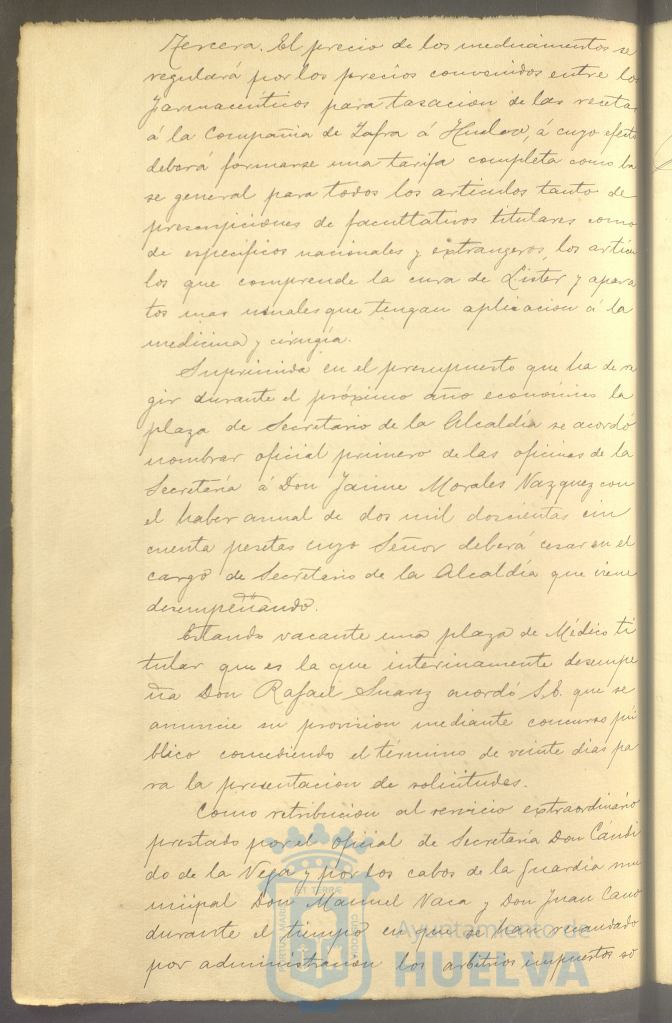 Tercera. El precio de los medicamentos se
regulará por los precios convenidos entre los
farmacéuticos para tasacion de las recetas
á la Compañia de Zafra á Huelva, á cuyo efecto
deberá formarse una tarifa completa como ba
se general para todos los articulos tanto de
prescripciones de facultativos titulares como
de especificos nacionales y extrangeros, los articu
los que comprende la cura de Lister y apara
tos mas usuales que tengan aplicacion á la
medicina y cirugía.
Suprimida en el presupuesto que ha de re
gir durante el próximo año económico la
plaza de Secretario de la Alcaldía se acordó
nombrar oficial primero de las oficinas de la
Secretaría á Don Jaime Morales Vazquez con
el haber anual de dos mil doscientas cin
cuenta pesetas cuyo Señor deberá cesar en el
cargo de Secretario de la Alcaldía que viene
desempeñando.
Estando vacante una plaza de Médico ti
tular que es la que interinamente desempe
ña Don Rafael Suarez acordó S.E. que se
anuncie su provision mediante concurso pú
blico concediendo el término de veinte dias pa
ra la presentacion de solicitudes.
Como retribucion al servicio extraordinario
prestado por el oficial de Secretaría Don Cándi
do de la Vega y por los cabos de la Guardia mu
nicipal Don Manuel Vaca y Don Juan Cano
durante el tiempo en que se han recaudado
por administracion los arbitrios impuestos so
Ayuntamiento de
HUELVA